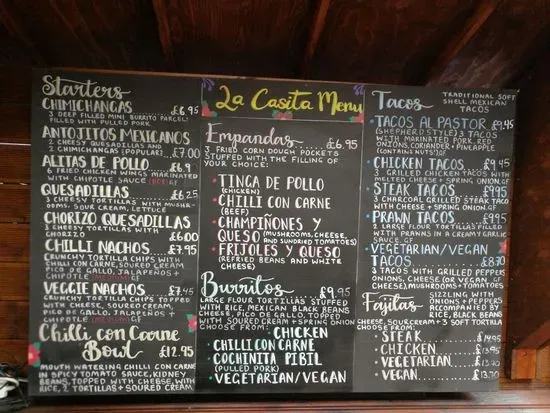 Starters
CHIMICHANGAS £6.95
3 DEEP FILLED MINI BURRITO PARCELS
FILLED WITH PULLED PORK
ANTOJITOS MEXICANOS
2 CHEESY QUESADILLAS AND
2 CHIMICHANGAS (POPULAR) £7.00
ALITAS DE POLLO £6
6 FRIED CHICKEN WINGS MARINATED
WITH CHIPOTLE SAUCE GF
QUESADILLAS £6.25
2 CHEESY TORTILLAS WITH MUSH-
ROOMS, SOUR CREAM, LETTUCE
CHORIZO QUESADILLAS
2 CHEESY TORTILLAS WITH
CHORIZO £6.00
CHILLI NACHOS £7.95
CRUNCHY TORTILLA CHIPS WITH
CHILLI CON CARNE, SOURED CREAM
PICO DE GALLO, JALAPEÑOS +
CHIPOTLE (MEDIUM) GF
VEGGIE NACHOS £7.45
CRUNCHY TORTILLA CHIPS TOPPED
WITH CHEESE, SOURED CREAM,
PICO DE GALLO, JALAPEÑOS +
CHIPOTLE (MEDIUM) GF
Chilli con Carne
Bowl £12.95
MOUTH WATERING CHILLI CON CARNE
IN SPICY TOMATO SAUCE, KIDNEY
BEANS, TOPPED WITH CHEESE, WITH
RICE, 2 TORTILLAS + SOURED CREAM
La Casita Menu
Empandas £6.95
3 FRIED CORN DOUGH POCKETS
STUFFED WITH THE FILLING OF
YOUR CHOICE:
• TINGA DE POLLO
(CHICKEN)
• CHILLI CON CARNE
(BEEF)
• CHAMPIÑONES Y
QUESO (MUSHROOMS, CHEESE,
AND SUNDRIED TOMATOES)
• FRITOLES Y QUESO
(REFRIED BEANS AND WHITE
CHEESE)
Burritos £9.95
LARGE FLOUR TORTILLAS STUFFED
WITH RICE, MEXICAN BLACK BEANS
CHEESE, PICO DE GALLO, TOPPED
WITH SOURED CREAM + SPRING ONION
CHOOSE FROM: • CHICKEN
• CHILLI CON CARNE
• COCHINITA PIBIL
(PULLED PORK)
• VEGETARIAN/VEGAN
Tacos TRADITIONAL SOFT
SHELL MEXICAN
TACOS
• TACOS AL PASTOR £9.45
(SHEPHERD STYLE) 3 TACOS
WITH MARINATED PORK, RED
ONIONS, CORIANDER + PINEAPPLE
(CONTAINS NUTS) GF
• CHICKEN TACOS £9.45
3 GRILLED CHICKEN TACOS WITH
MELTED CHEESE + SPRING ONION GF
• STEAK TACOS £9.95
3 CHARCOAL GRILLED STEAK TACO
WITH CHEESE + SPRING ONION GF
• PRAWN TACOS £9.95
2 LARGE FLOUR TORTILLAS FILLED
WITH PRAWNS IN A CREAMY GARLIC
SAUCE. GF
• VEGETARIAN/VEGAN
TACOS £8.70
3 TACOS WITH GRILLED PEPPERS
ONIONS, CHEESE (OR VEGAN GF
CHEESE), MUSHROOMS + TOMATOES
Fajitas SIZZLING WITH
ONIONS + PEPPERS
ACCOMPANIED BY
RICE, BLACK BEANS
CHEESE, SOUR CREAM + 3 SOFT TORTILLA
CHOOSE FROM:
• STEAK £14.95
• CHICKEN £13.95
• VEGETARIAN £13.70
• VEGAN £13.70